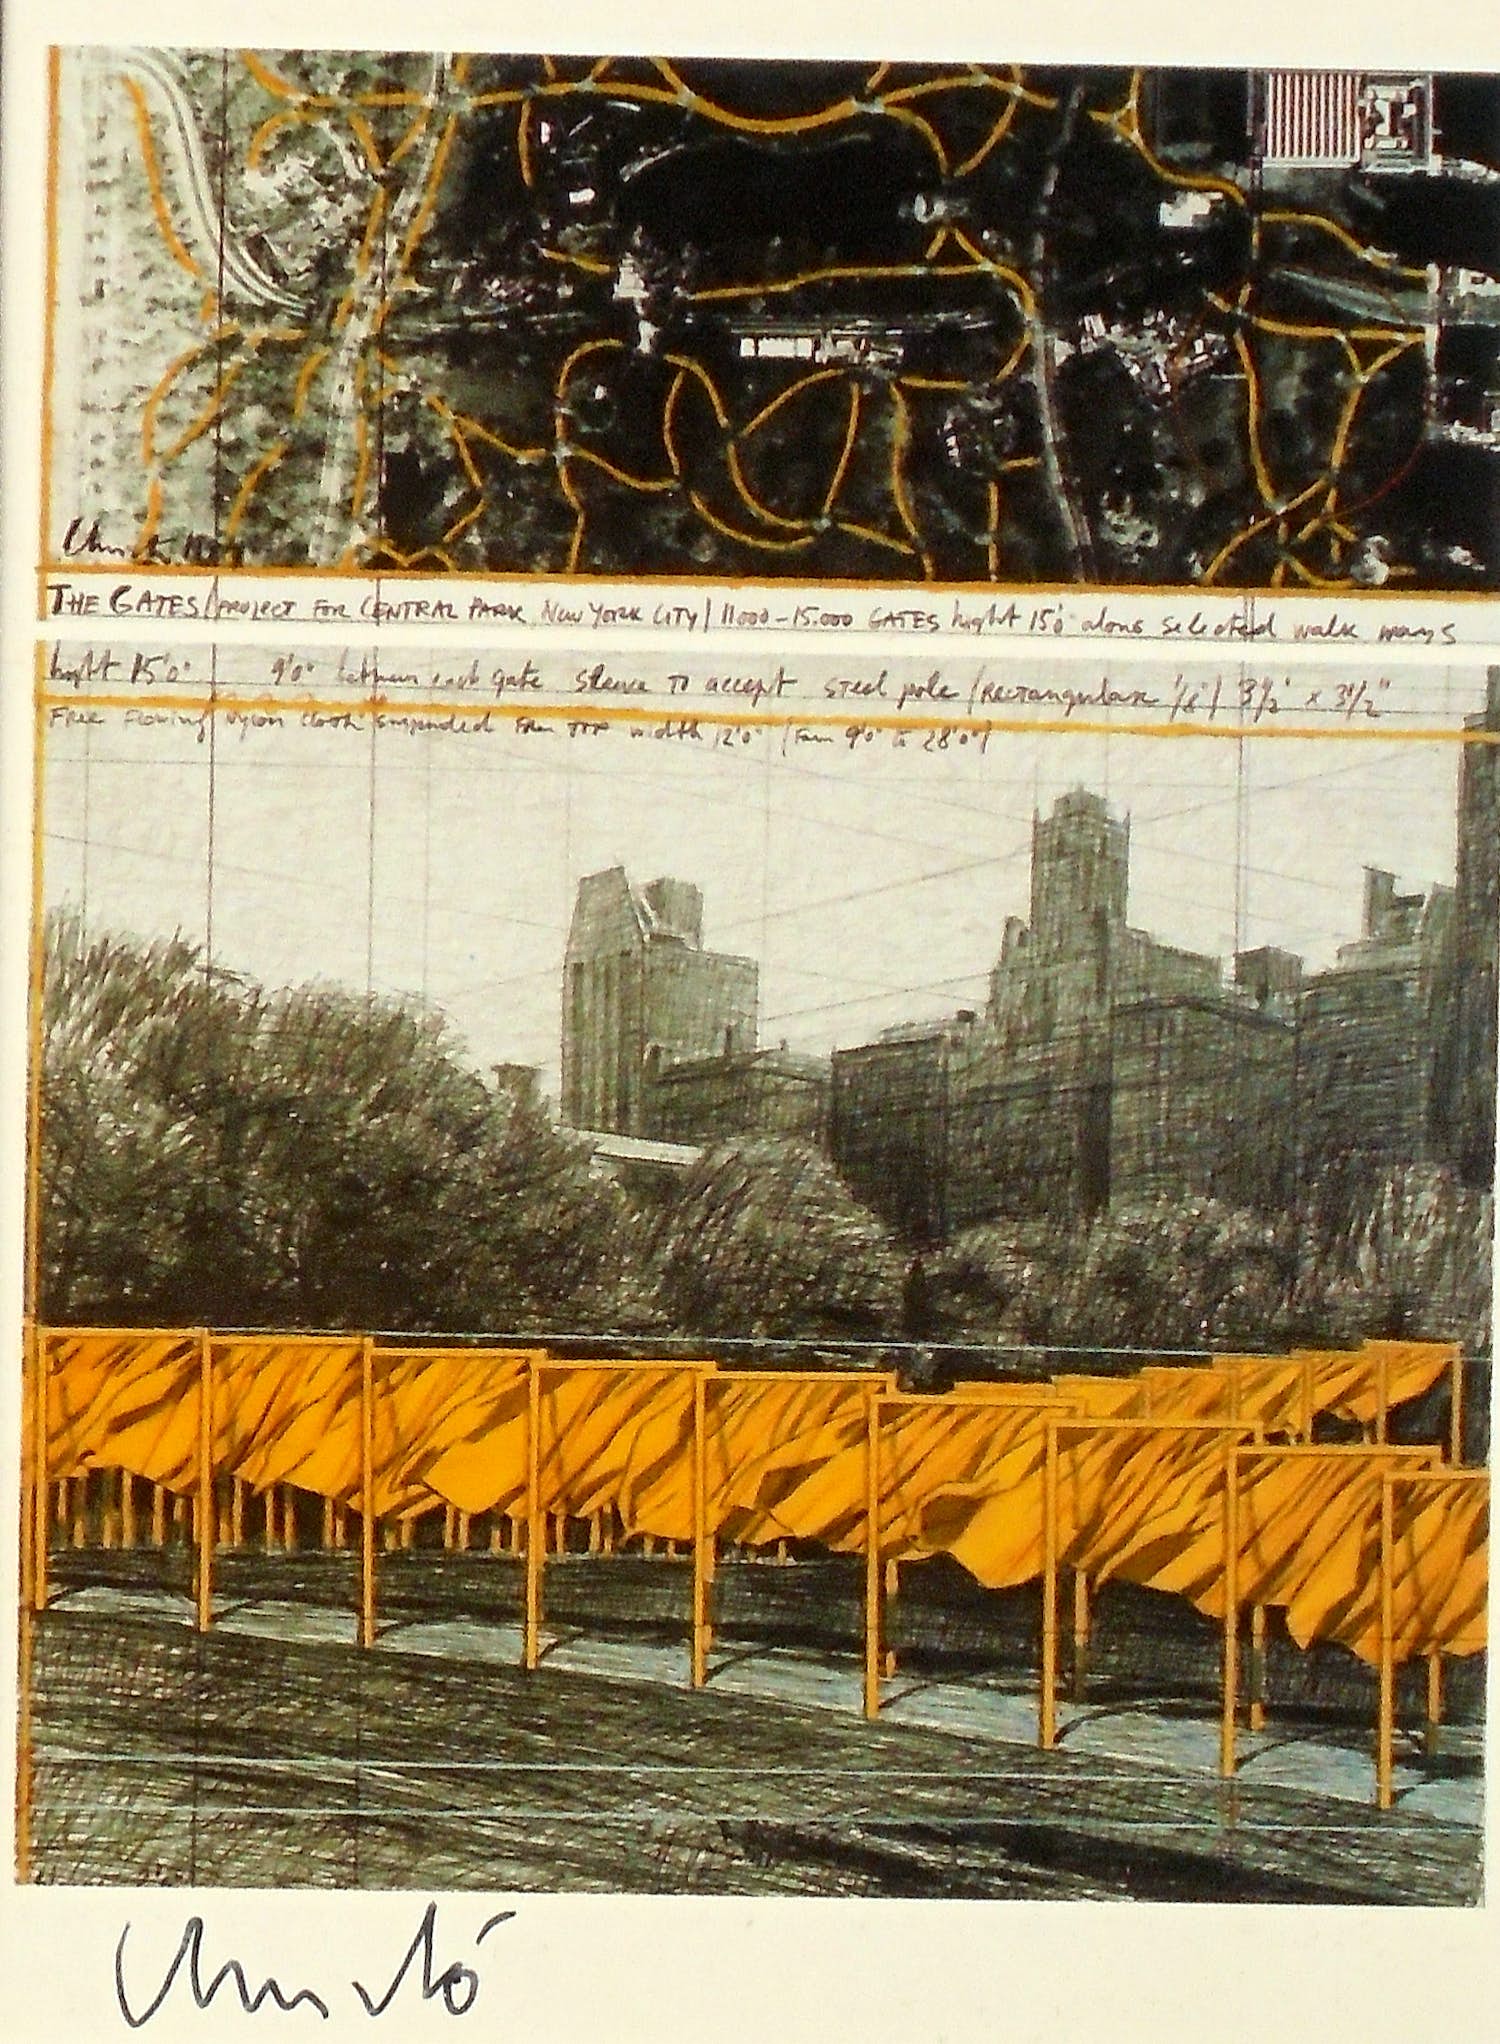 Christo
THE GATES (PROJECT FOR CENTRAL PARK NEW YORK CITY) 11000-15.000 GATES hight 15'0 along selected walk ways
hight 15'0" 9'0" between each gate Sleeve TO accept steel pole (RECTANGULAR 3½" x 3½"
Free Flowing Nylon cloth suspended From TOP width 12'0" (From 9'0" to 28'0")
Christo